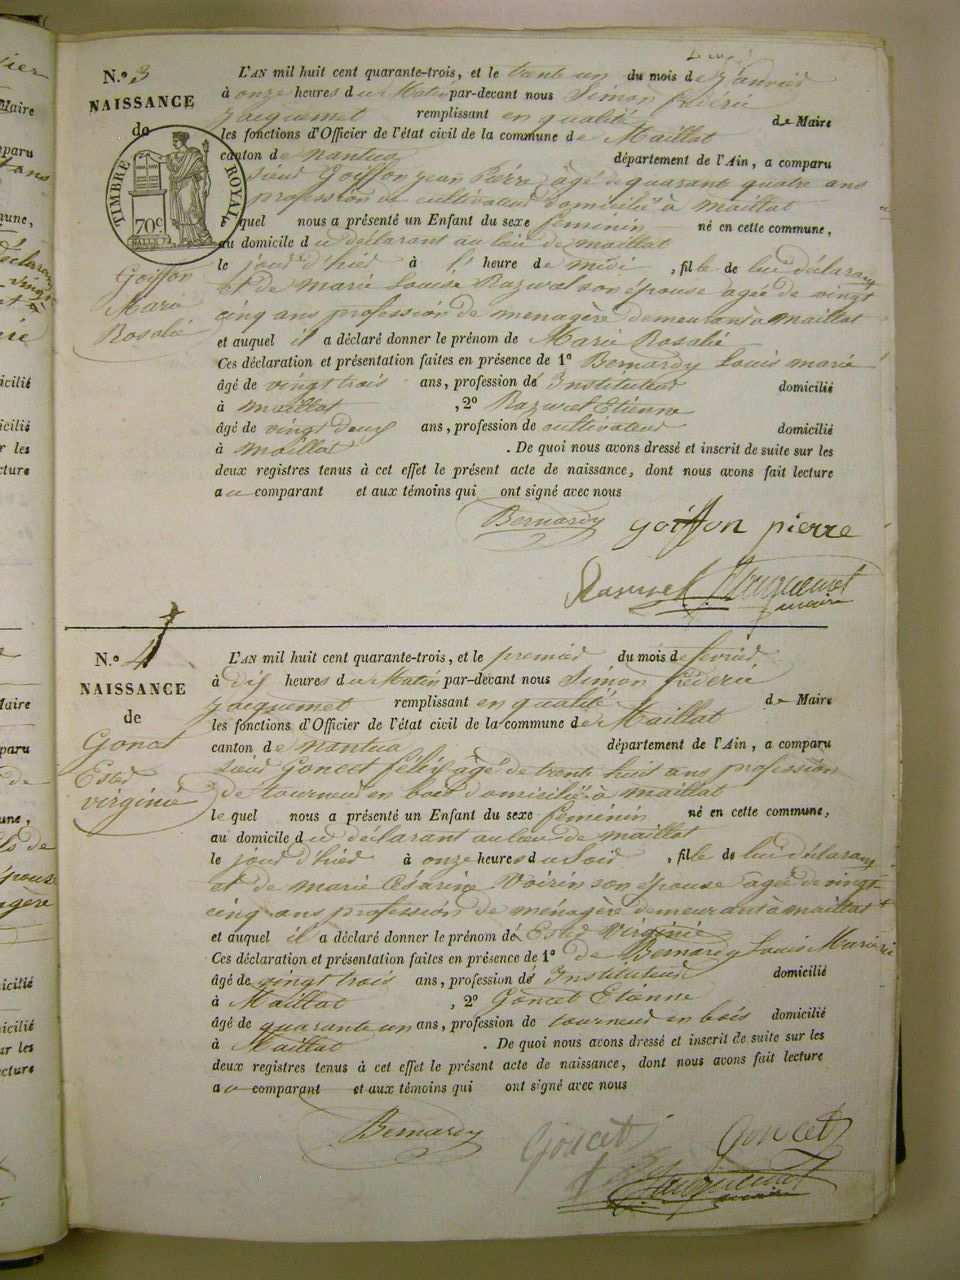 N.º 3
NAISSANCE
de
TIMBRE ROYAL
70c
Goiffon
Marie
Rosalie
L'AN mil huit cent quarante-trois, et le trente un du mois de janvier
à onze heures du Matin par-devant nous Simon Fréderic
Jacquemet remplissant en qualité de Maire
les fonctions d'Officier de l'état civil de la commune de Maillat
canton de nantua département de l'Ain, a comparu
sieur Goiffon jean Pierre âgé de quarant quatre ans
profession de cultivateur domicilié à maillat
lequel nous a présenté un Enfant du sexe feminin né en cette commune,
au domicile du déclarant au lieu de maillat
le jour d'hier à l' heure de midi , fille de lui déclarant
et de marie Louise son épouse agée de vingt
cinq ans profession de menagère demeurant à maillat
et auquel il a déclaré donner le prénom de Marie Rosalie
Ces déclaration et présentation faites en présence de 1º Bernardy Louis marie
âgé de vingt trois ans, profession de Instituteur domicilié
à maillat , 2º Etienne
âgé de vingt deux ans, profession de cultivateur domicilié
à maillat . De quoi nous avons dressé et inscrit de suite sur les
deux registres tenus à cet effet le présent acte de naissance, dont nous avons fait lecture
au comparant et aux témoins qui ont signé avec nous
Bernardy goiffon pierre
Jacquemet
maire
N.º 4
NAISSANCE
de
Goncet
Ester
virginie
L'AN mil huit cent quarante-trois, et le premier du mois de fevrier
à dix heures du Matin par-devant nous Simon Fréderic
Jacquemet remplissant en qualité de Maire
les fonctions d'Officier de l'état civil de la commune de Maillat
canton de nantua département de l'Ain, a comparu
sieur Goncet félix âgé de trente huit ans profession
de tourneur en bois domicilié à maillat
lequel nous a présenté un Enfant du sexe feminin né en cette commune,
au domicile du déclarant au lieu de maillat
le jour d'hier à onze heures du soir , fille de lui déclarant
et de marie Césarine Voirin son épouse agée de vingt
cinq ans profession de ménagère demeurant à maillat
et auquel il a déclaré donner le prénom de Ester Virginie
Ces déclaration et présentation faites en présence de 1º de Bernardy Louis Marie
âgé de vingt trois ans, profession de Instituteur domicilié
à Maillat , 2º Goncet Etienne
âgé de quarante un ans, profession de tourneur en bois domicilié
à Maillat . De quoi nous avons dressé et inscrit de suite sur les
deux registres tenus à cet effet le présent acte de naissance, dont nous avons fait lecture
au comparant et aux témoins qui ont signé avec nous
Bernardy Goncet Goncet
Jacquemet
maire